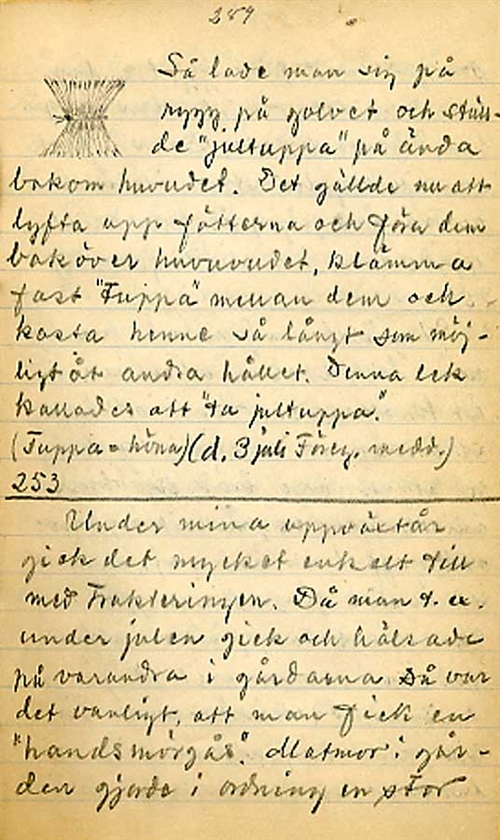 254
Så lade man sig på
rygg på golvet och ställ-
de "jultuppa" på ända
bakom huvudet. Det gällde nu att
lyfta upp fötterna och föra dem
baköver huvuvudet, klämma
fast "Tuppa" mellan dem och
kasta henne så långt som möj-
ligt åt andra hållet. Denna lek
kallades att "ta jultuppa".
(Tuppa = höna) (d. 3 juli Föreg. medd.)
253
Under mina uppväxtår
gick det mycket enkelt till
med Trakteringen. Då man t. ex.
under julen gick och hälsade
på varandra i gårdarna då var
det vanligt, att man fick en
"handsmörgås". Matmor i går-
den gjorde i ordning en stor